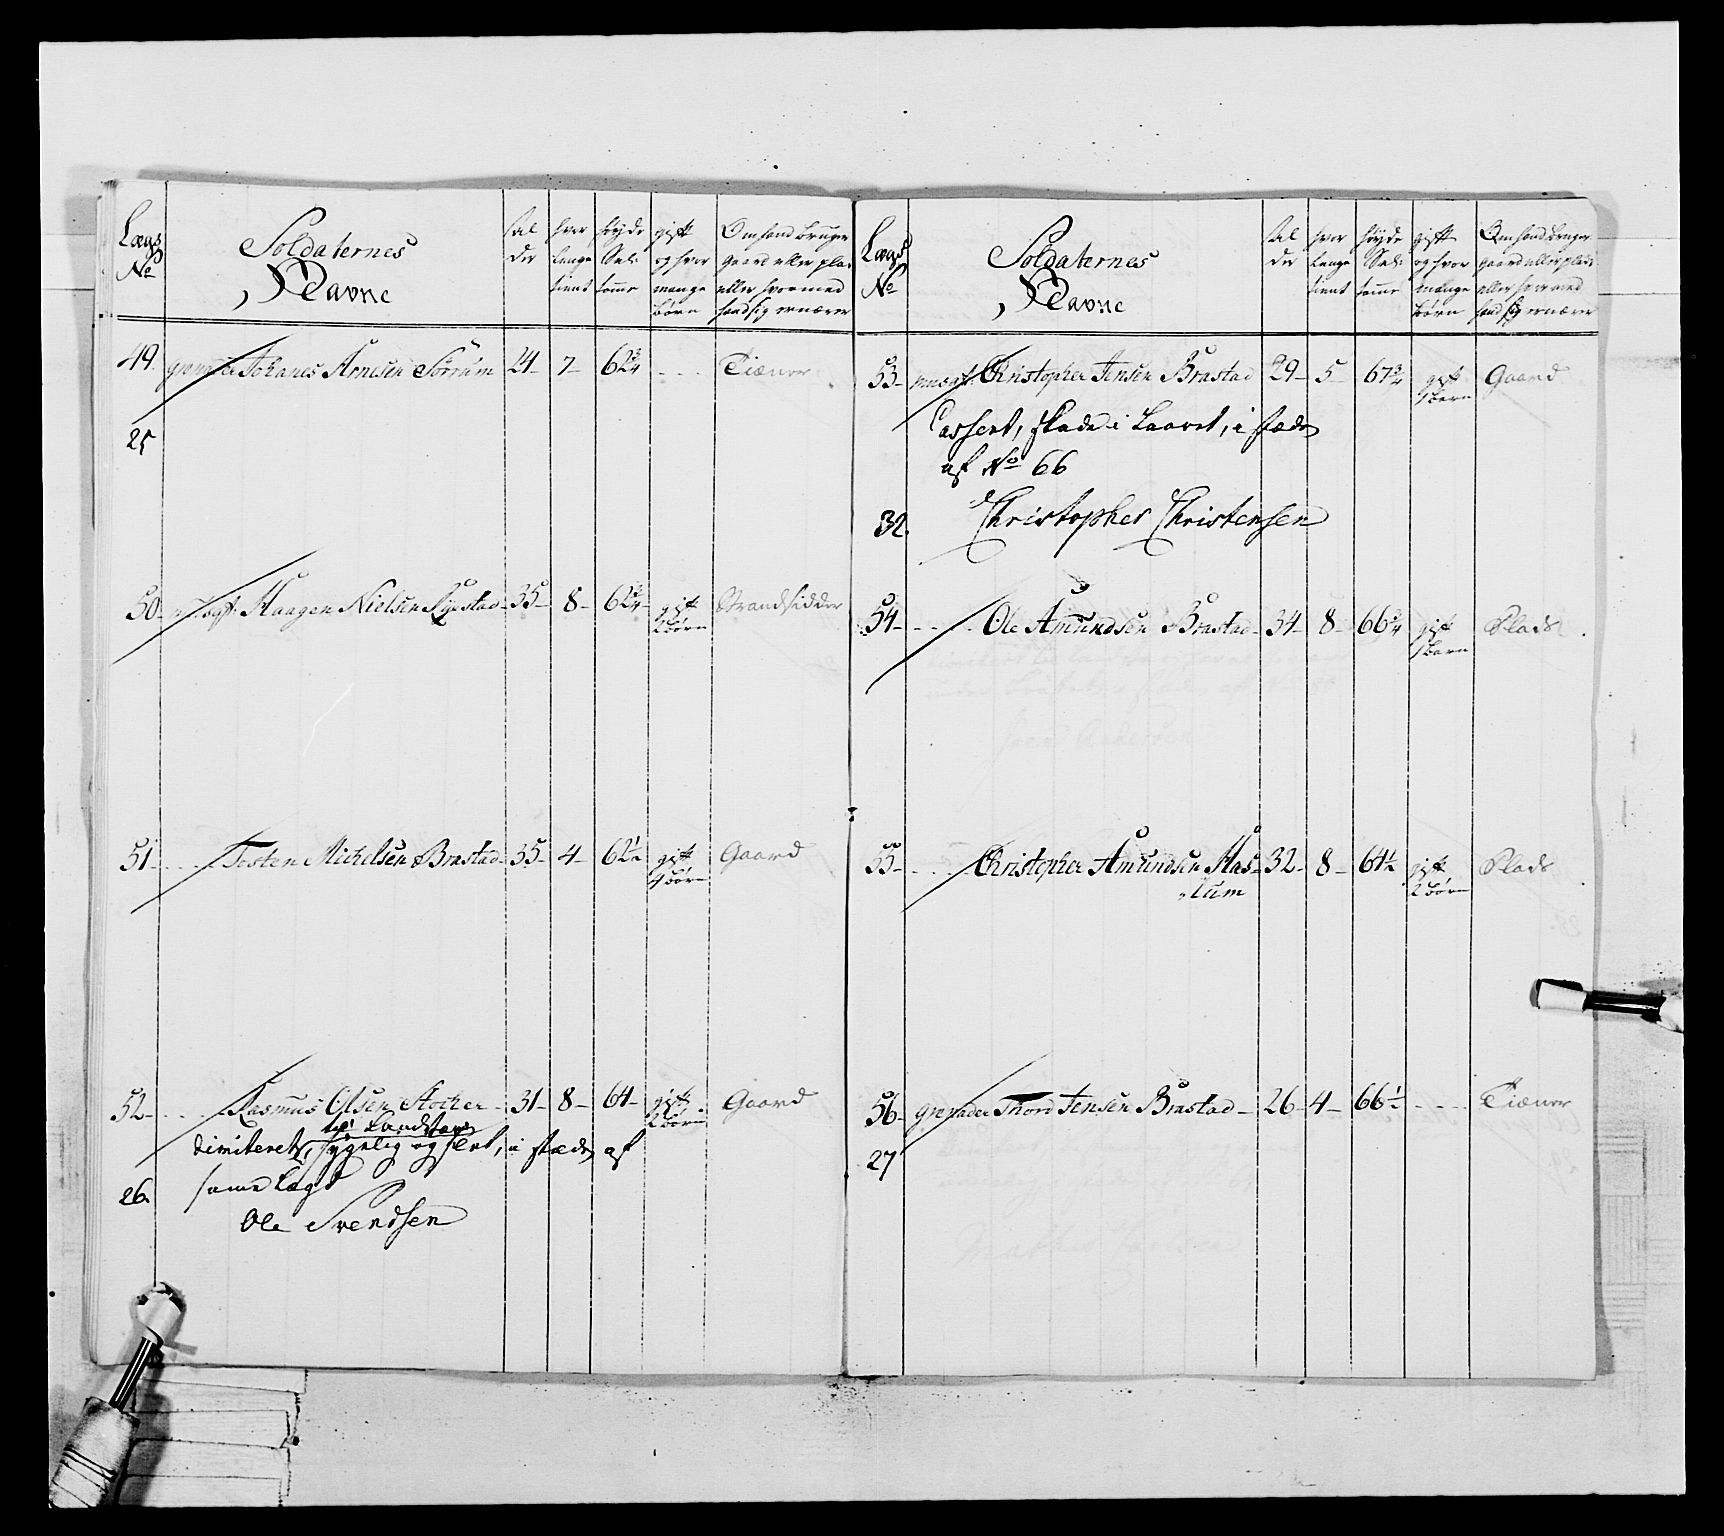 Lægs No
Soldaternes Navne
Al der
hvor længe tient
Høyde Sal: tomme
gift og hvor mange børn
Om hand bruger gaard eller plads eller hvormed hand sig ernærer
49. grenader Johanes Arnesen Sørrum 21- 7- 62 3/4 - - - Tiæner
25
50- Haagen Nielsen Ryestad- 35- 8- 62 3/4- gift 2 børn Strandsidder
51- - - - Testen Michelsen Brastad- 35- 4- 62 1/2 gift 4 børn Gaard
52- - - - Rasmus Olsen Stocker- 31- 8- 64- gift 2 børn Gaard
til Landvær
dimiteret, sygelig og slet, i stæden af
26. same Lægd
Ole Svendsen
Lægs No
Soldaternes Navne
Al der
hvor længe tient
Høyde Sal: tomme
gift og hvor mænge børn
Om hand bruger gaard eller plads eller hvormed hand sig ernærer
53- Christopher Jensen Brastad 29- 5- 67 3/4 gift 1 barn Gaard
Casseret, skade i Laaret, i stæden
af No 66
32. Christopher Christensen
54- - - - Ole Amundsen Brastad- 34- 8- 66 3/4 gift 1 barn Plads
55- - - - Christopher Amundsen Has- 32- 8- 64 1/2 gift 2 børn Plads
lum
56- grenader Thord Jensen Brastad- 26- 4- 66 1/2 - - - Tiæner
27